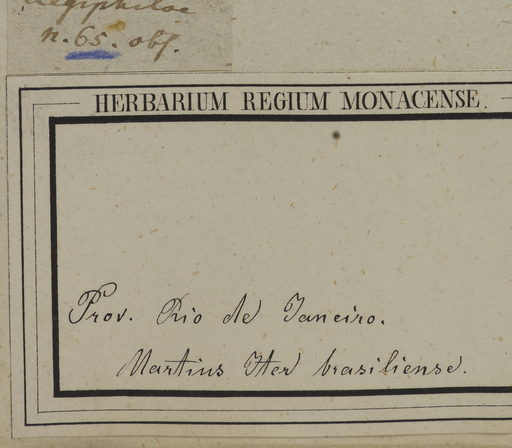 Aegiphilae
n. 65. obs.
HERBARIUM REGIUM MONACENSE.
Prov. Rio de Janeiro.
Martius Iter brasiliense.